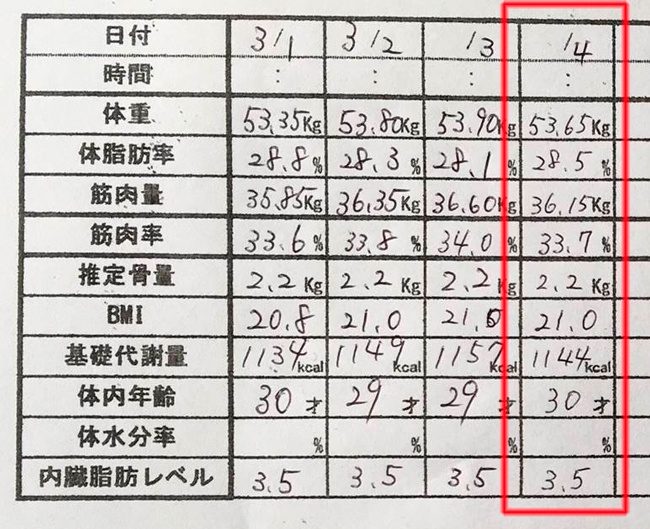 日付 3/1 3/2 /3 /4
時間 : : : :
体重 53.35Kg 53.80Kg 53.90Kg 53.65Kg
体脂肪率 28.8% 28.3% 28.1% 28.5%
筋肉量 35.85Kg 36.35Kg 36.60Kg 36.15Kg
筋肉率 33.6% 33.8% 34.0% 33.7%
推定骨量 2.2Kg 2.2Kg 2.2Kg 2.2Kg
BMI 20.8 21.0 21.0 21.0
基礎代謝量 1134kcal 1149kcal 1157kcal 1144kcal
体内年齢 30才 29才 29才 30才
体水分率 % % % %
内臓脂肪レベル 3.5 3.5 3.5 3.5